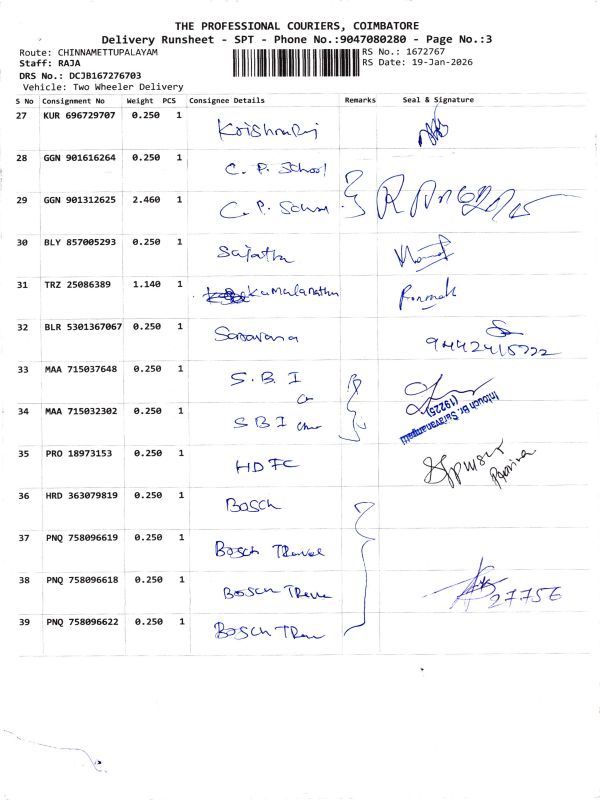 THE PROFESSIONAL COURIERS, COIMBATORE
Delivery Runsheet - SPT - Phone No.:9047080280 - Page No.:3
Route: CHINNAMETTUPALAYAM
RS No.: 1672767
Staff: RAJA
RS Date: 19-Jan-2026
DRS No.: DCJB167276703
Vehicle: Two Wheeler Delivery
S No Consignment No Weight PCS Consignee Details Remarks Seal & Signature
27 KUR 696729707 0.250 1
28 GGN 901616264 0.250 1 C. P. School
29 GGN 901312625 2.460 1 C. P.
30 BLY 857005293 0.250 1 Sujatha
31 TRZ 25086389 1.140 1
32 BLR 5301367067 0.250 1 Saravana
33 MAA 715037648 0.250 1 S.B.I
34 MAA 715032302 0.250 1 SBI
Intouch Br. Saravanampatti
(19225)
35 PRO 18973153 0.250 1 HDFC
36 HRD 363079819 0.250 1 Bosch
37 PNQ 758096619 0.250 1 Bosch
38 PNQ 758096618 0.250 1 Bosch
27756
39 PNQ 758096622 0.250 1 Bosch